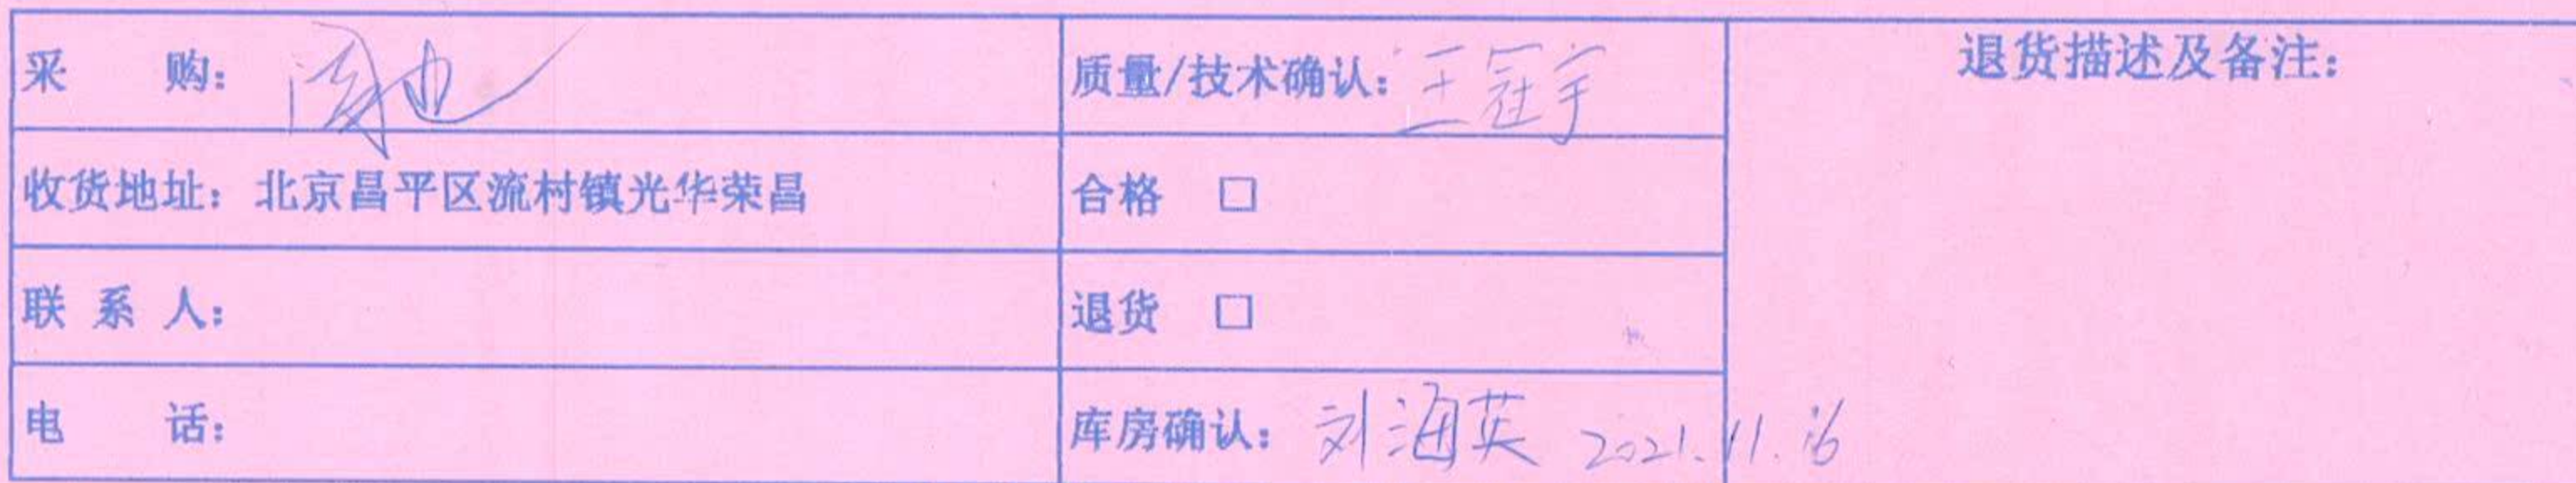 采 购：
质量/技术确认：王冠宇
退货描述及备注：
收货地址：北京昌平区流村镇光华荣昌
合格 □
联 系 人：
退货 □
电 话：
库房确认：刘海英 2021.11.16